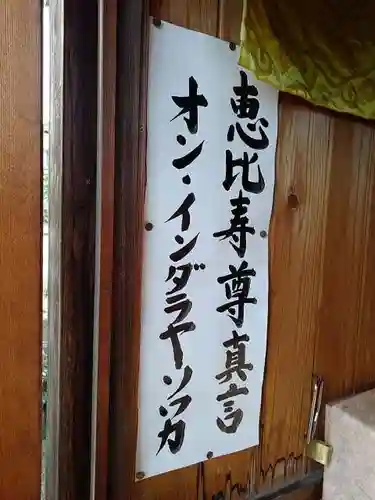 恵比寿尊真言
オン・インダラヤソワカ